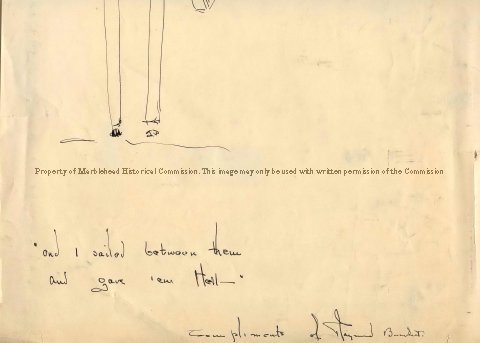 Property of Marblehead Historical Commission. This image may only be used with written permission of the Commission
"and I sailed between them
and gave 'em Hell—"
Compliments of